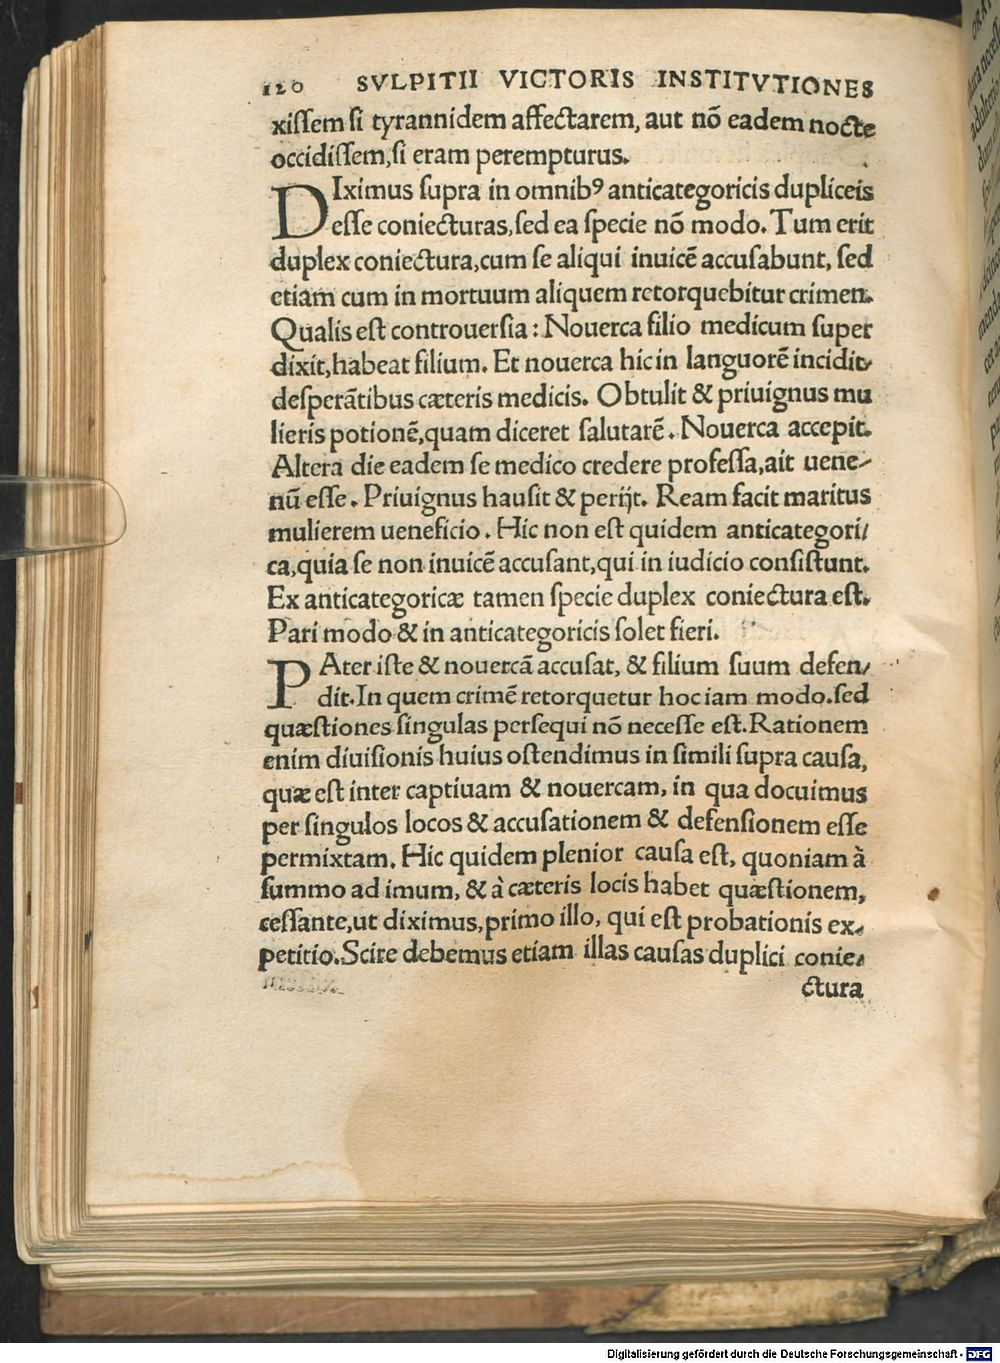 120 SVLPITII VICTORIS INSTITVTIONES
xissem si tyrannidem affectarem, aut nõ eadem nocte
occidissem, si eram perempturus.
DIximus supra in omnibꝰ anticategoricis dupliceis
esse coniecturas, sed ea specie nõ modo. Tum erit
duplex coniectura, cum se aliqui inuicẽ accusabunt, sed
etiam cum in mortuum aliquem retorquebitur crimen.
Qualis est controuersia: Nouerca filio medicum super
dixit, habeat filium. Et nouerca hic in languorẽ incidit,
desperãtibus cæteris medicis. Obtulit & priuignus mu
lieris potionẽ, quam diceret salutarẽ. Nouerca accepit.
Altera die eadem se medico credere professa, ait uene-
nũ esse. Priuignus hausit & perijt. Ream facit maritus
mulierem ueneficio. Hic non est quidem anticategori/
ca, quia se non inuicẽ accusant, qui in iudicio consistunt.
Ex anticategoricæ tamen specie duplex coniectura est.
Pari modo & in anticategoricis solet fieri.
PAter iste & nouercã accusat, & filium suum defen/
dit. In quem crimẽ retorquetur hoc iam modo. sed
quæstiones singulas persequi nõ necesse est. Rationem
enim diuisionis huius ostendimus in simili supra causa,
quæ est inter captiuam & nouercam, in qua docuimus
per singulos locos & accusationem & defensionem esse
permixtam. Hic quidem plenior causa est, quoniam à
summo ad imum, & à cæteris locis habet quæstionem,
cessante, ut diximus, primo illo, qui est probationis ex-
petitio. Scire debemus etiam illas causas duplici conie-
ctura
Digitalisierung gefördert durch die Deutsche Forschungsgemeinschaft - DFG